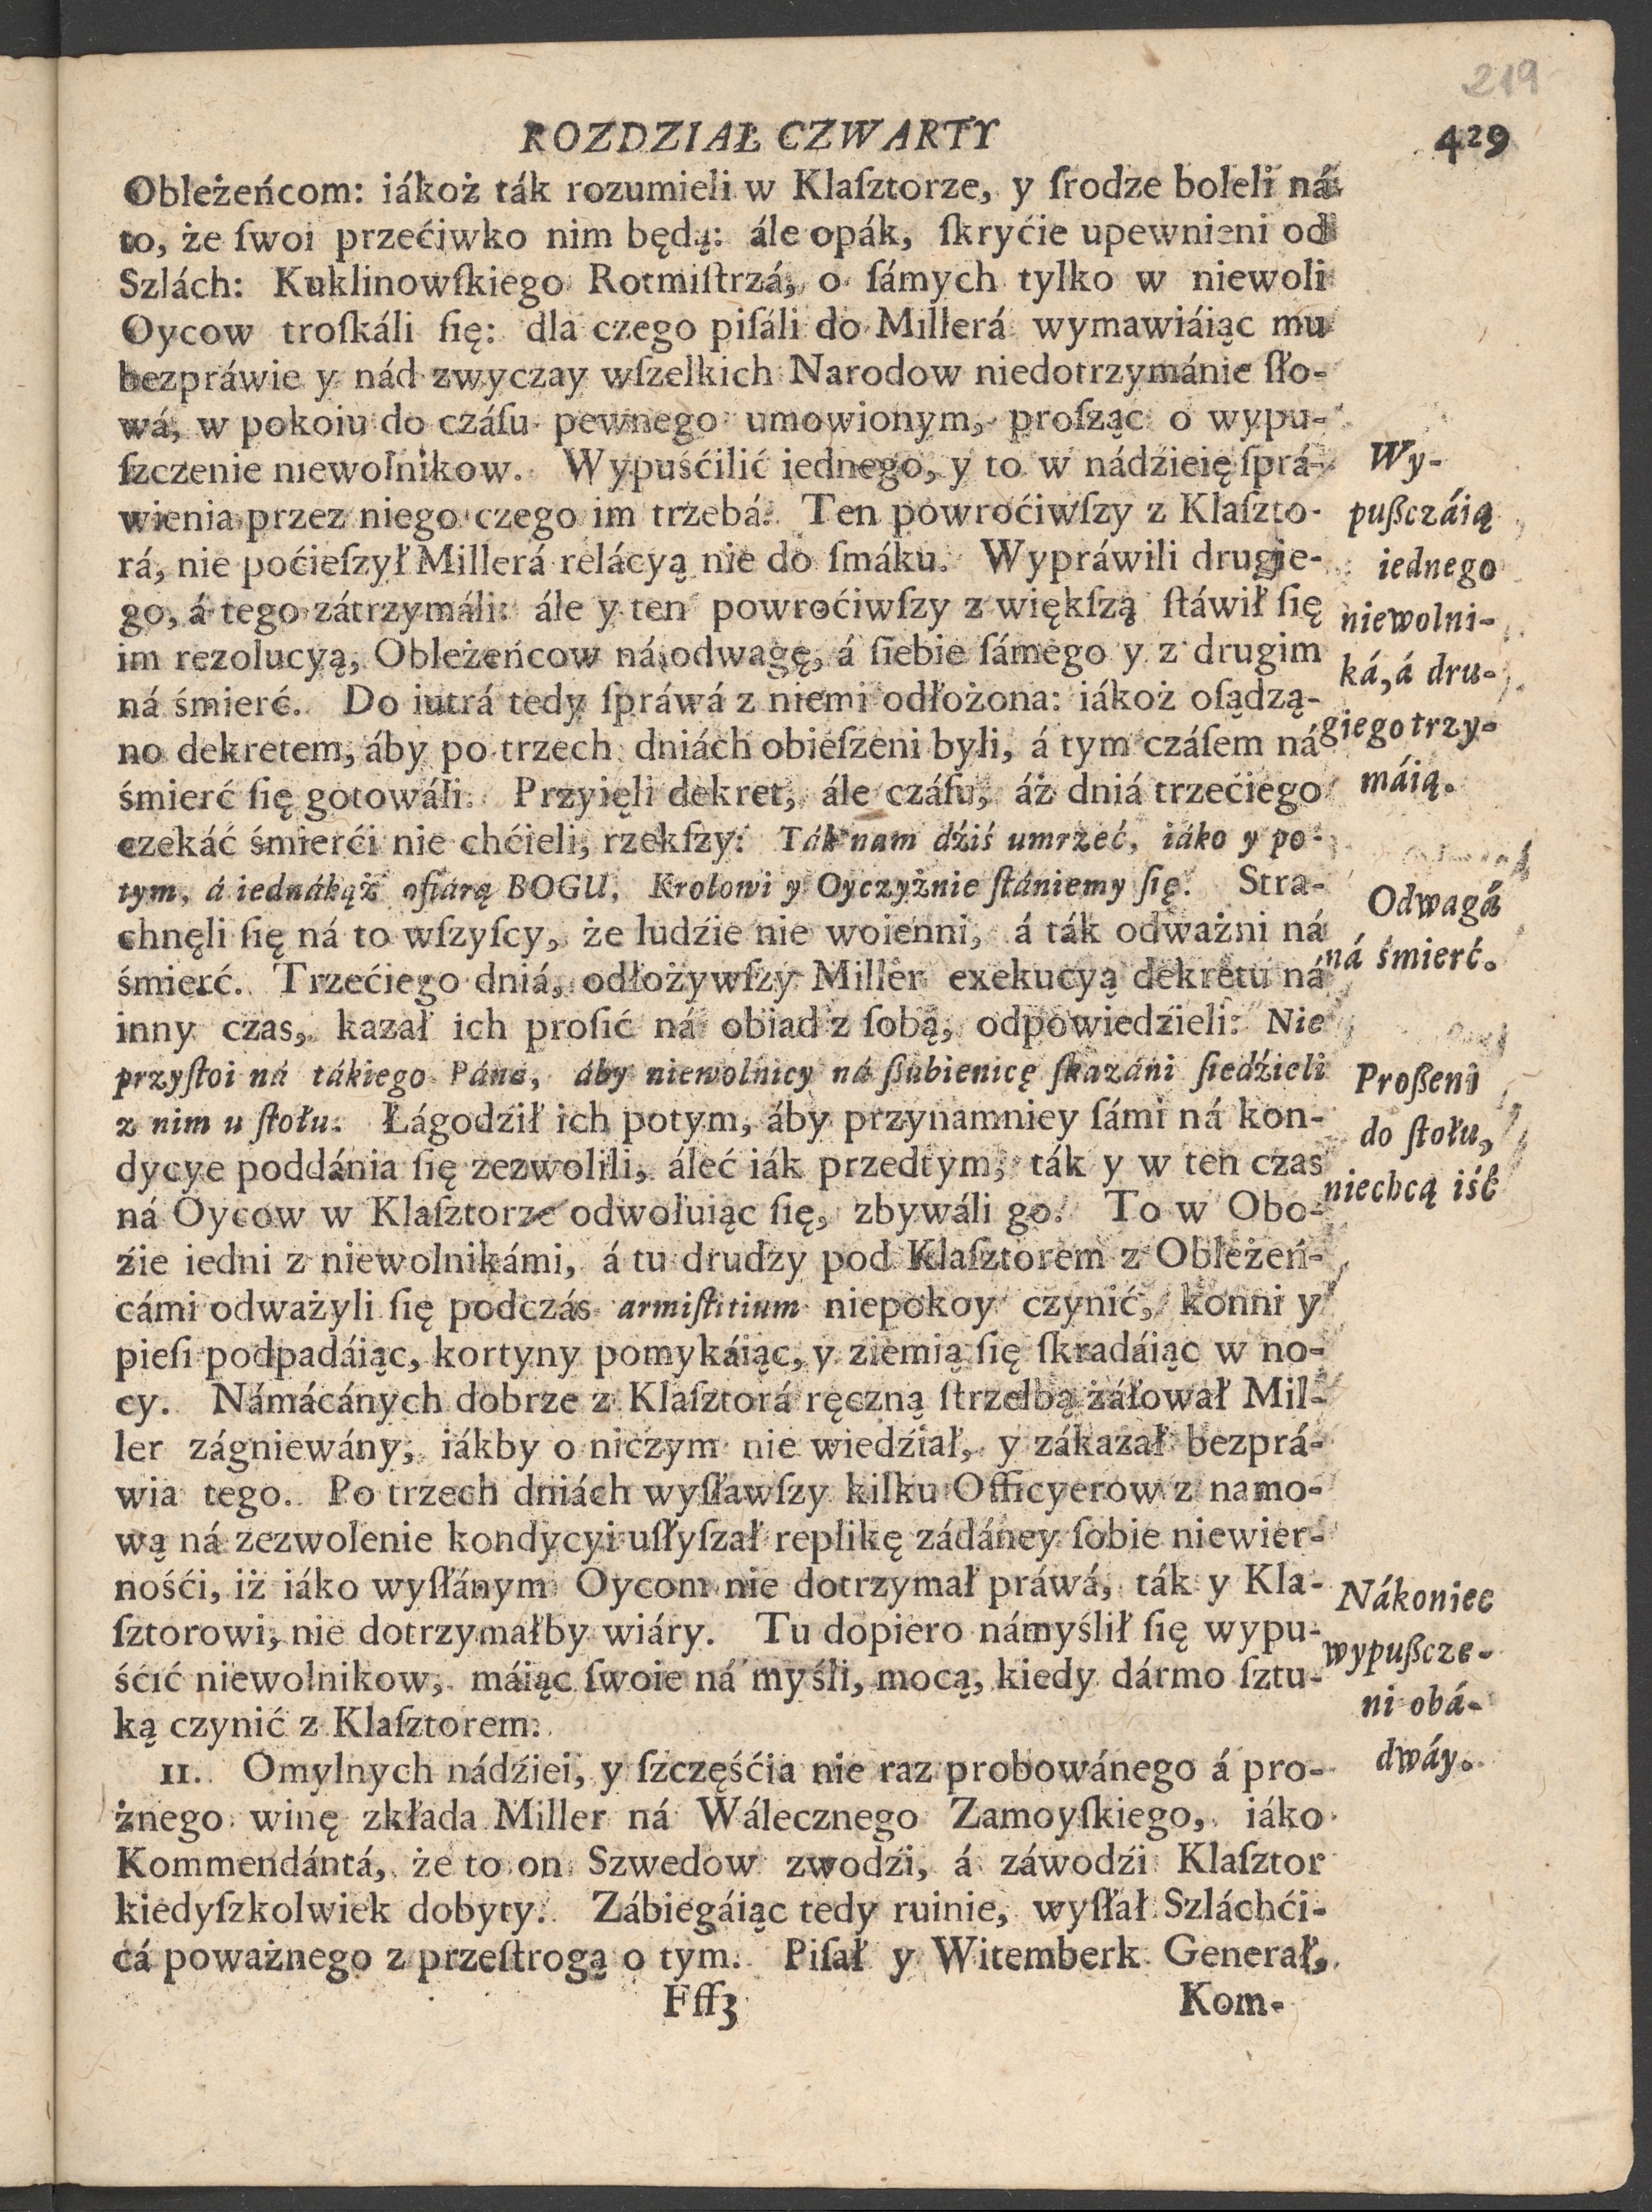 219
ROZDZIAŁ CZWARTY 429
Obleżeńcom: iákoż ták rozumieli w Klaſztorze, y ſrodze boleli ná
to, że ſwoi przećiwko nim będą: ále opák, ſkryćie upewnieni od
Szlách: Kuklinowſkiego Rotmiſtrzá, o ſámych tylko w niewoli
Oycow troſkáli ſię: dla czego piſáli do Millerá wymawiáiąc mu
bezpráwie y nád zwyczay wſzelkich Narodow niedotrzymánie ſło-
wá, w pokoiu do czáſu pewnego umowionym, proſząc o wypu-
ſzczenie niewolnikow. Wypuśćilić iednego, y to w nádźieię ſprá-
wienia przez niego czego im trzebá. Ten powroćiwſzy z Klaſzto-
rá, nie poćieſzył Millerá relácyą nie do ſmáku. Wypráwili drugie-
go, á tego zátrzymáli: ále y ten powroćiwſzy z większą ſtáwił ſię
im rezolucyą, Obleżeńcow ná odwagę, á ſiebie ſámego y z drugim
ná śmierć. Do iutrá tedy ſpráwá z niemi odłożona: iákoż oſądzą-
no dekretem, áby po trzech dniách obieſzeni byli, á tym czáſem ná
śmierć ſię gotowáli. Przyięli dekret, ále czáſu, áż dniá trzećiego
czekáć śmierći nie chćieli, rzekſzy: Ták nam dźiś umrzeć, iáko y po-
tym, á iednákąż ofiárą BOGU, Krolowi y Oyczyźnie ſtániemy ſię. Stra-
chnęli ſię ná to wſzyſcy, że ludźie nie woienni, á ták odważni ná
śmierć. Trzećiego dniá, odłożywſzy Miller exekucyą dekretu ná
inny czas, kazał ich proſić ná obiad z ſobą, odpowiedźieli: Nie
przyſtoi ná tákiego Páná, áby niewolnicy ná ßubienicę ſkazáni ſiedźieli
z nim u ſtołu. Łágodził ich potym, áby przynamniey ſámi ná kon-
dycye poddánia ſię zezwolili, áleć iák przedtym, ták y w ten czas
ná Oycow w Klaſztorze odwołuiąc ſię, zbywáli go. To w Obo-
źie iedni z niewolnikámi, á tu drudzy pod Klaſztorem z Obleżeń-
cámi odważyli ſię podczás armiſtitium niepokoy czynić, konni y
pieſi podpadáiąc, kortyny pomykáiąc, y ziemią ſię ſkradáiąc w no-
cy. Námácánych dobrze z Klaſztorá ręczną ſtrzelbą żáłował Mil-
ler zágniewány, iákby o niczym nie wiedźiał, y zákazał bezprá-
wia tego. Po trzech dniách wyſławſzy kilku Officyerow z namo-
wą ná zezwolenie kondycyi uſłyſzał replikę zádáney ſobie niewier-
nośći, iż iáko wyſłánym Oycom nie dotrzymał práwá, ták y Kla-
ſztorowi, nie dotrzymałby wiáry. Tu dopiero námyślił ſię wypu-
śćić niewolnikow, máiąc ſwoie ná myśli, mocą, kiedy dármo ſztu-
ką czynić z Klaſztorem.
11. Omylnych nádźiei, y ſzczęśćia nie raz probowánego á pro-
żnego winę zkłada Miller ná Wálecznego Zamoyſkiego, iáko
Kommendántá, że to on Szwedow zwodźi, á záwodźi Klaſztor
kiedyſzkolwiek dobyty. Zábiegáiąc tedy ruinie, wyſłał Szláchći-
cá poważnego z przeſtrogą o tym. Piſał y Witemberk Generał,
Fff3 Kom-
Wy-
pußczáią
iednego
niewolni-
ká, á dru-
giego trzy-
máią.
Odwagá
ná śmierć.
Proßeni
do ſtołu,
niechcą iść
Nákoniec
wypußcze-
ni obá-
dwáy.